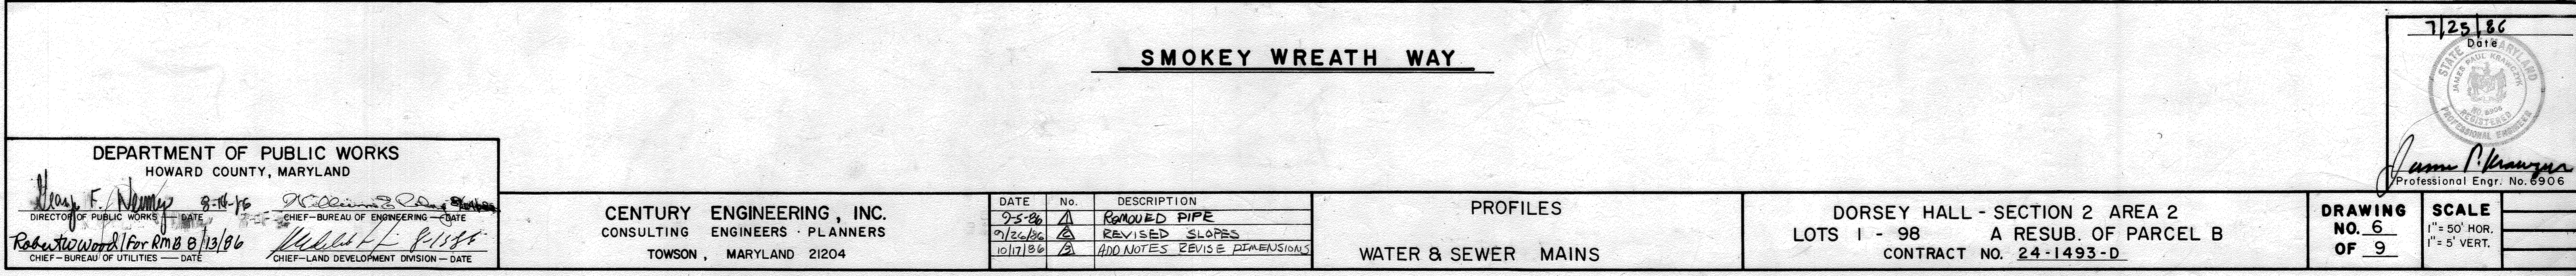 SMOKEY WREATH WAY
7/25/86
Date
STATE OF MARYLAND
JAMES PAUL KRAWCZYK
NO. 6906
REGISTERED
PROFESSIONAL ENGINEER
Professional Engr. No. 6906
DEPARTMENT OF PUBLIC WORKS
HOWARD COUNTY, MARYLAND
George F. 8-14-86
DIRECTOR OF PUBLIC WORKS — DATE
William E.
CHIEF-BUREAU OF ENGINEERING — DATE
Robert W Wood / For RMB 8/13/86
CHIEF-BUREAU OF UTILITIES — DATE
8-13-86
CHIEF-LAND DEVELOPMENT DIVISION - DATE
CENTURY ENGINEERING, INC.
CONSULTING ENGINEERS · PLANNERS
TOWSON, MARYLAND 21204
DATE No. DESCRIPTION
9-5-86 1 REMOVED PIPE
9/26/86 2 REVISED SLOPES
10/17/86 3 ADD NOTES REVISE DIMENSIONS
PROFILES
WATER & SEWER MAINS
DORSEY HALL - SECTION 2 AREA 2
LOTS 1 - 98 A RESUB. OF PARCEL B
CONTRACT NO. 24-1493-D
DRAWING
NO. 6
OF 9
SCALE
1"= 50' HOR.
1"= 5' VERT.